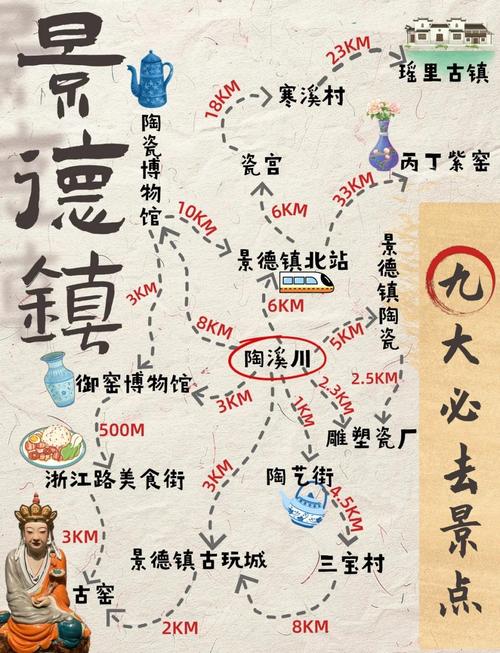 景德鎮
九大必去景点
23KM
瑶里古镇
18KM
寒溪村
陶瓷博物馆
瓷宫
33KM
丙丁紫窑
10KM
6KM
景德镇北站
景德镇陶瓷
3KM
8KM
6KM
5KM
陶溪川
御窑博物馆
3KM
1KM
2.3KM
2.5KM
500M
雕塑瓷厂
浙江路美食街
3KM
陶艺街
4.5KM
3KM
景德镇古玩城
三宝村
古窑
2KM
8KM